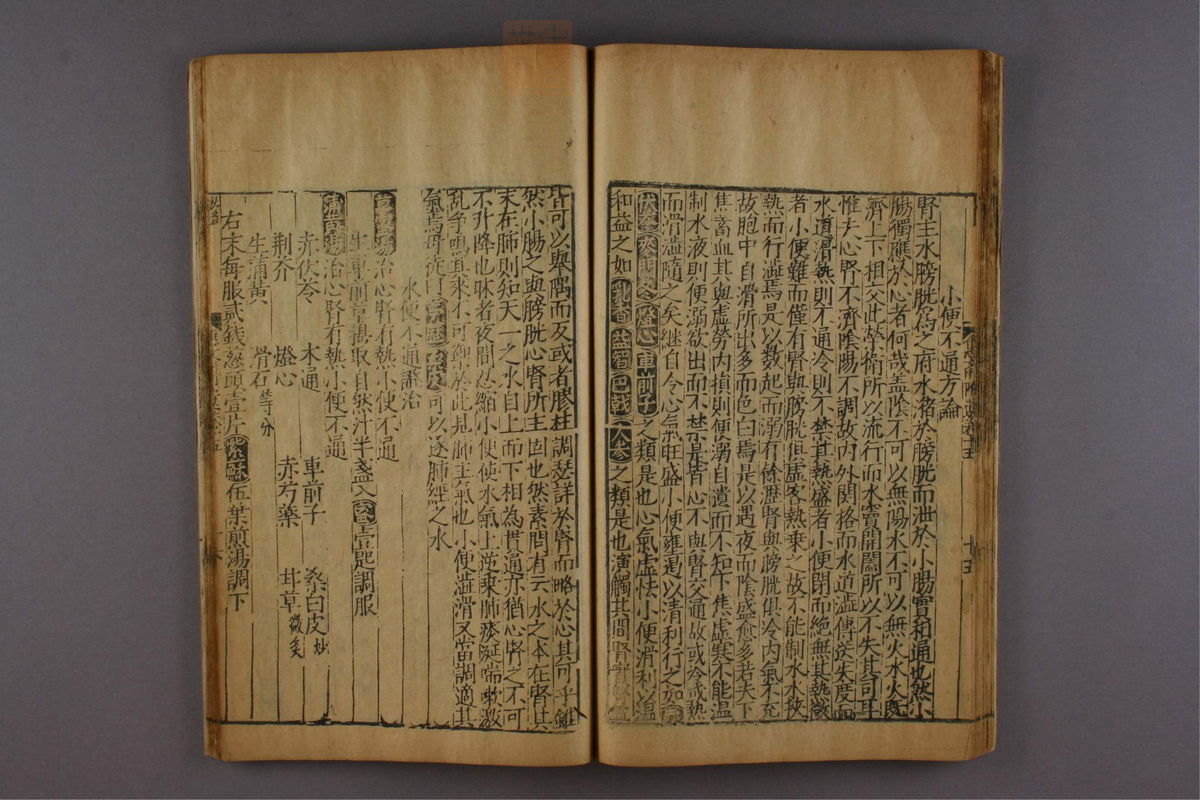 小便不通方論
腎主水膀胱為之府水潴於膀胱而泄於小腸實相通也然小
腸獨應於心者何哉盖陰不可以無陽水不可以無火水火既
濟上下相交此榮衛所以流行而水竇開闔所以不失其司耳
惟夫心腎不濟陰陽不調故内外関格而水道澁傳送失度而
水道滑熱則不通冷則不禁其熱盛者小便閉而絶無其熱微
者小便難而僅有腎與膀胱俱虛客熱乗之故不能制水水挾
熱而行澁焉是以数起而溺有餘瀝腎與膀胱俱冷内氣不充
故胞中自滑所出多而色白焉是以遇夜而陰盛愈多若夫下
焦畜血其與虛勞内損則便溺自遺而不知下焦虛寒不能温
制水液則便溺欲出而不禁是皆心不與腎交通故或冷或熱
而滑澁隨之矣継自今心氣旺盛小便壅遏以清利行之如
茯苓麥門冬燈心車前子之類是也心氣虛怯小便滑利以温
和益之如乳香益智巴戟人参之類是也演觸其間腎實
皆可以舉隅而反或者膠柱調瑟詳於腎而略於心其可乎雖
然小腸之與膀胱心腎所主固也然素問有云水之本在腎其
末在肺則知天一之水自上而下相為貫通亦猶心腎之不可
不升降也昧者夜間忍縮小便使水氣上逆乗肺痰涎喘嗽激
乱争鳴直乗不可御於此見肺主氣也小便澁滑又當調適其
氣焉毋徒曰葶藶可以逐肺經之水
水便不通證治
湯治心腎有熱小便不通
生車前草搗取自然汁半盞入蜜壹匙調服
湯治心腎有熱小便不通
赤茯苓 木通 車前子 桑白皮炒
荆芥 燈心 赤芍藥 甘草微炙
生蒲黄 滑石等分
右末每服貳錢葱頭壹片紫蘇伍葉煎湯調下